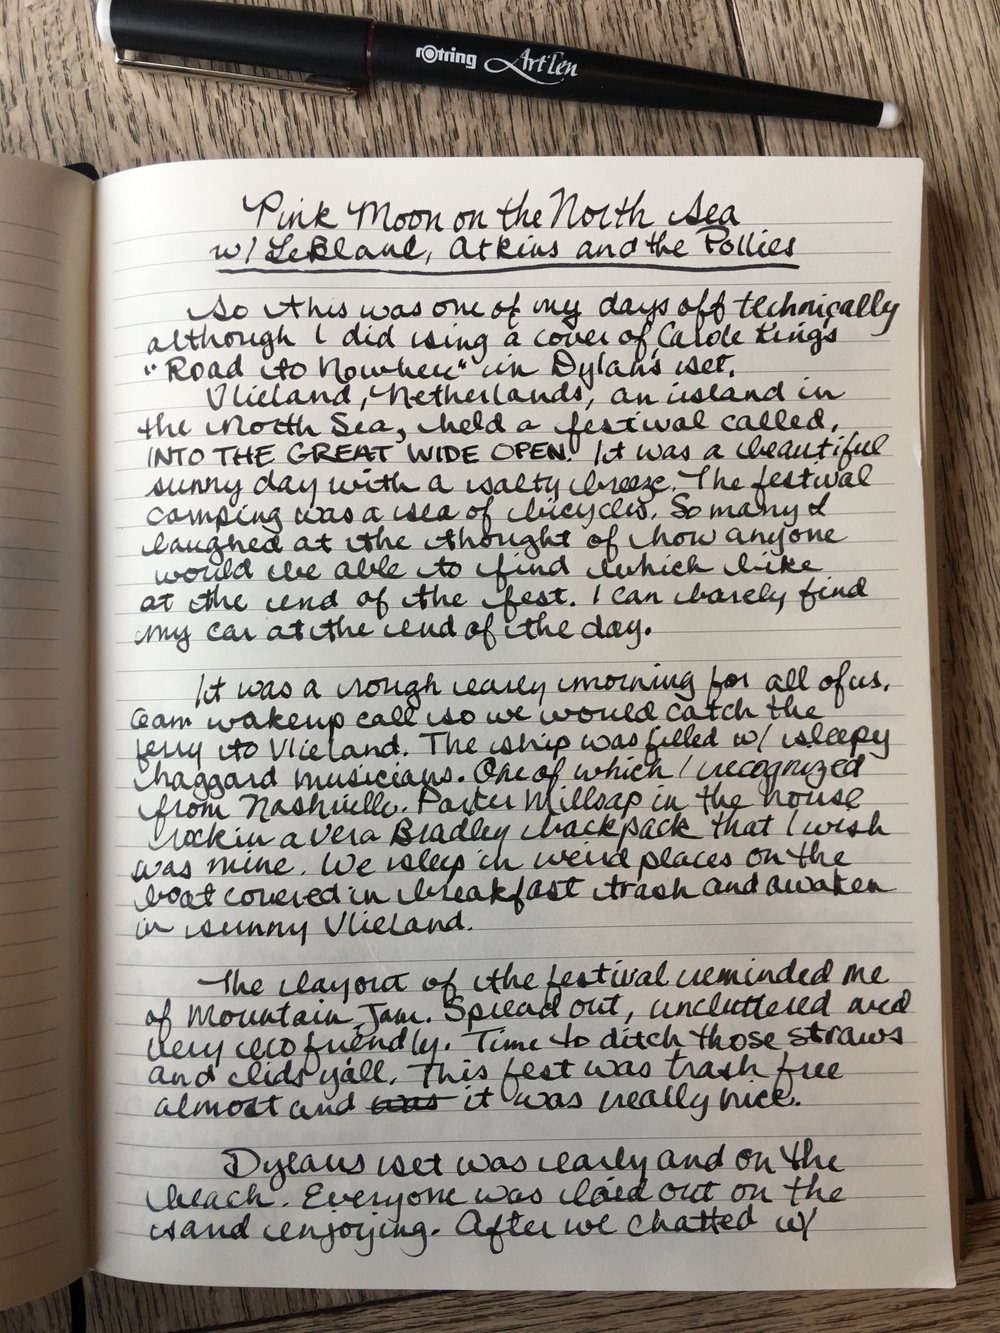 rotring ArtPen
Pink Moon on the North Sea
w/ LeBlanc, Atkins and the Pollies
So this was one of my days off technically
although I did sing a cover of Carole King's
"Road to Nowhere" in Dylan's set.
Vlieland, Netherlands, an island in
the North Sea, held a festival called,
INTO THE GREAT WIDE OPEN. It was a beautiful
sunny day with a salty breeze. The festival
camping was a sea of bicycles. So many I
laughed at the thought of how anyone
would be able to find which bike
at the end of the fest. I can barely find
my car at the end of the day.
It was a rough early morning for all of us.
6am wakeup call so we would catch the
ferry to Vlieland. The ship was filled w/ sleepy
haggard musicians. One of which I recognized
from Nashville. Parker Millsap in the house
rockin a Vera Bradley backpack that I wish
was mine. We sleep in weird places on the
boat covered in breakfast trash and awaken
in sunny Vlieland.
The layout of the festival reminded me
of Mountain Jam. Spread out, uncluttered and
very eco friendly. Time to ditch those straws
and lids y'all. This fest was trash free
almost and was it was really nice.
Dylans set was early and on the
beach. Everyone was laid out on the
sand enjoying. After we chatted w/